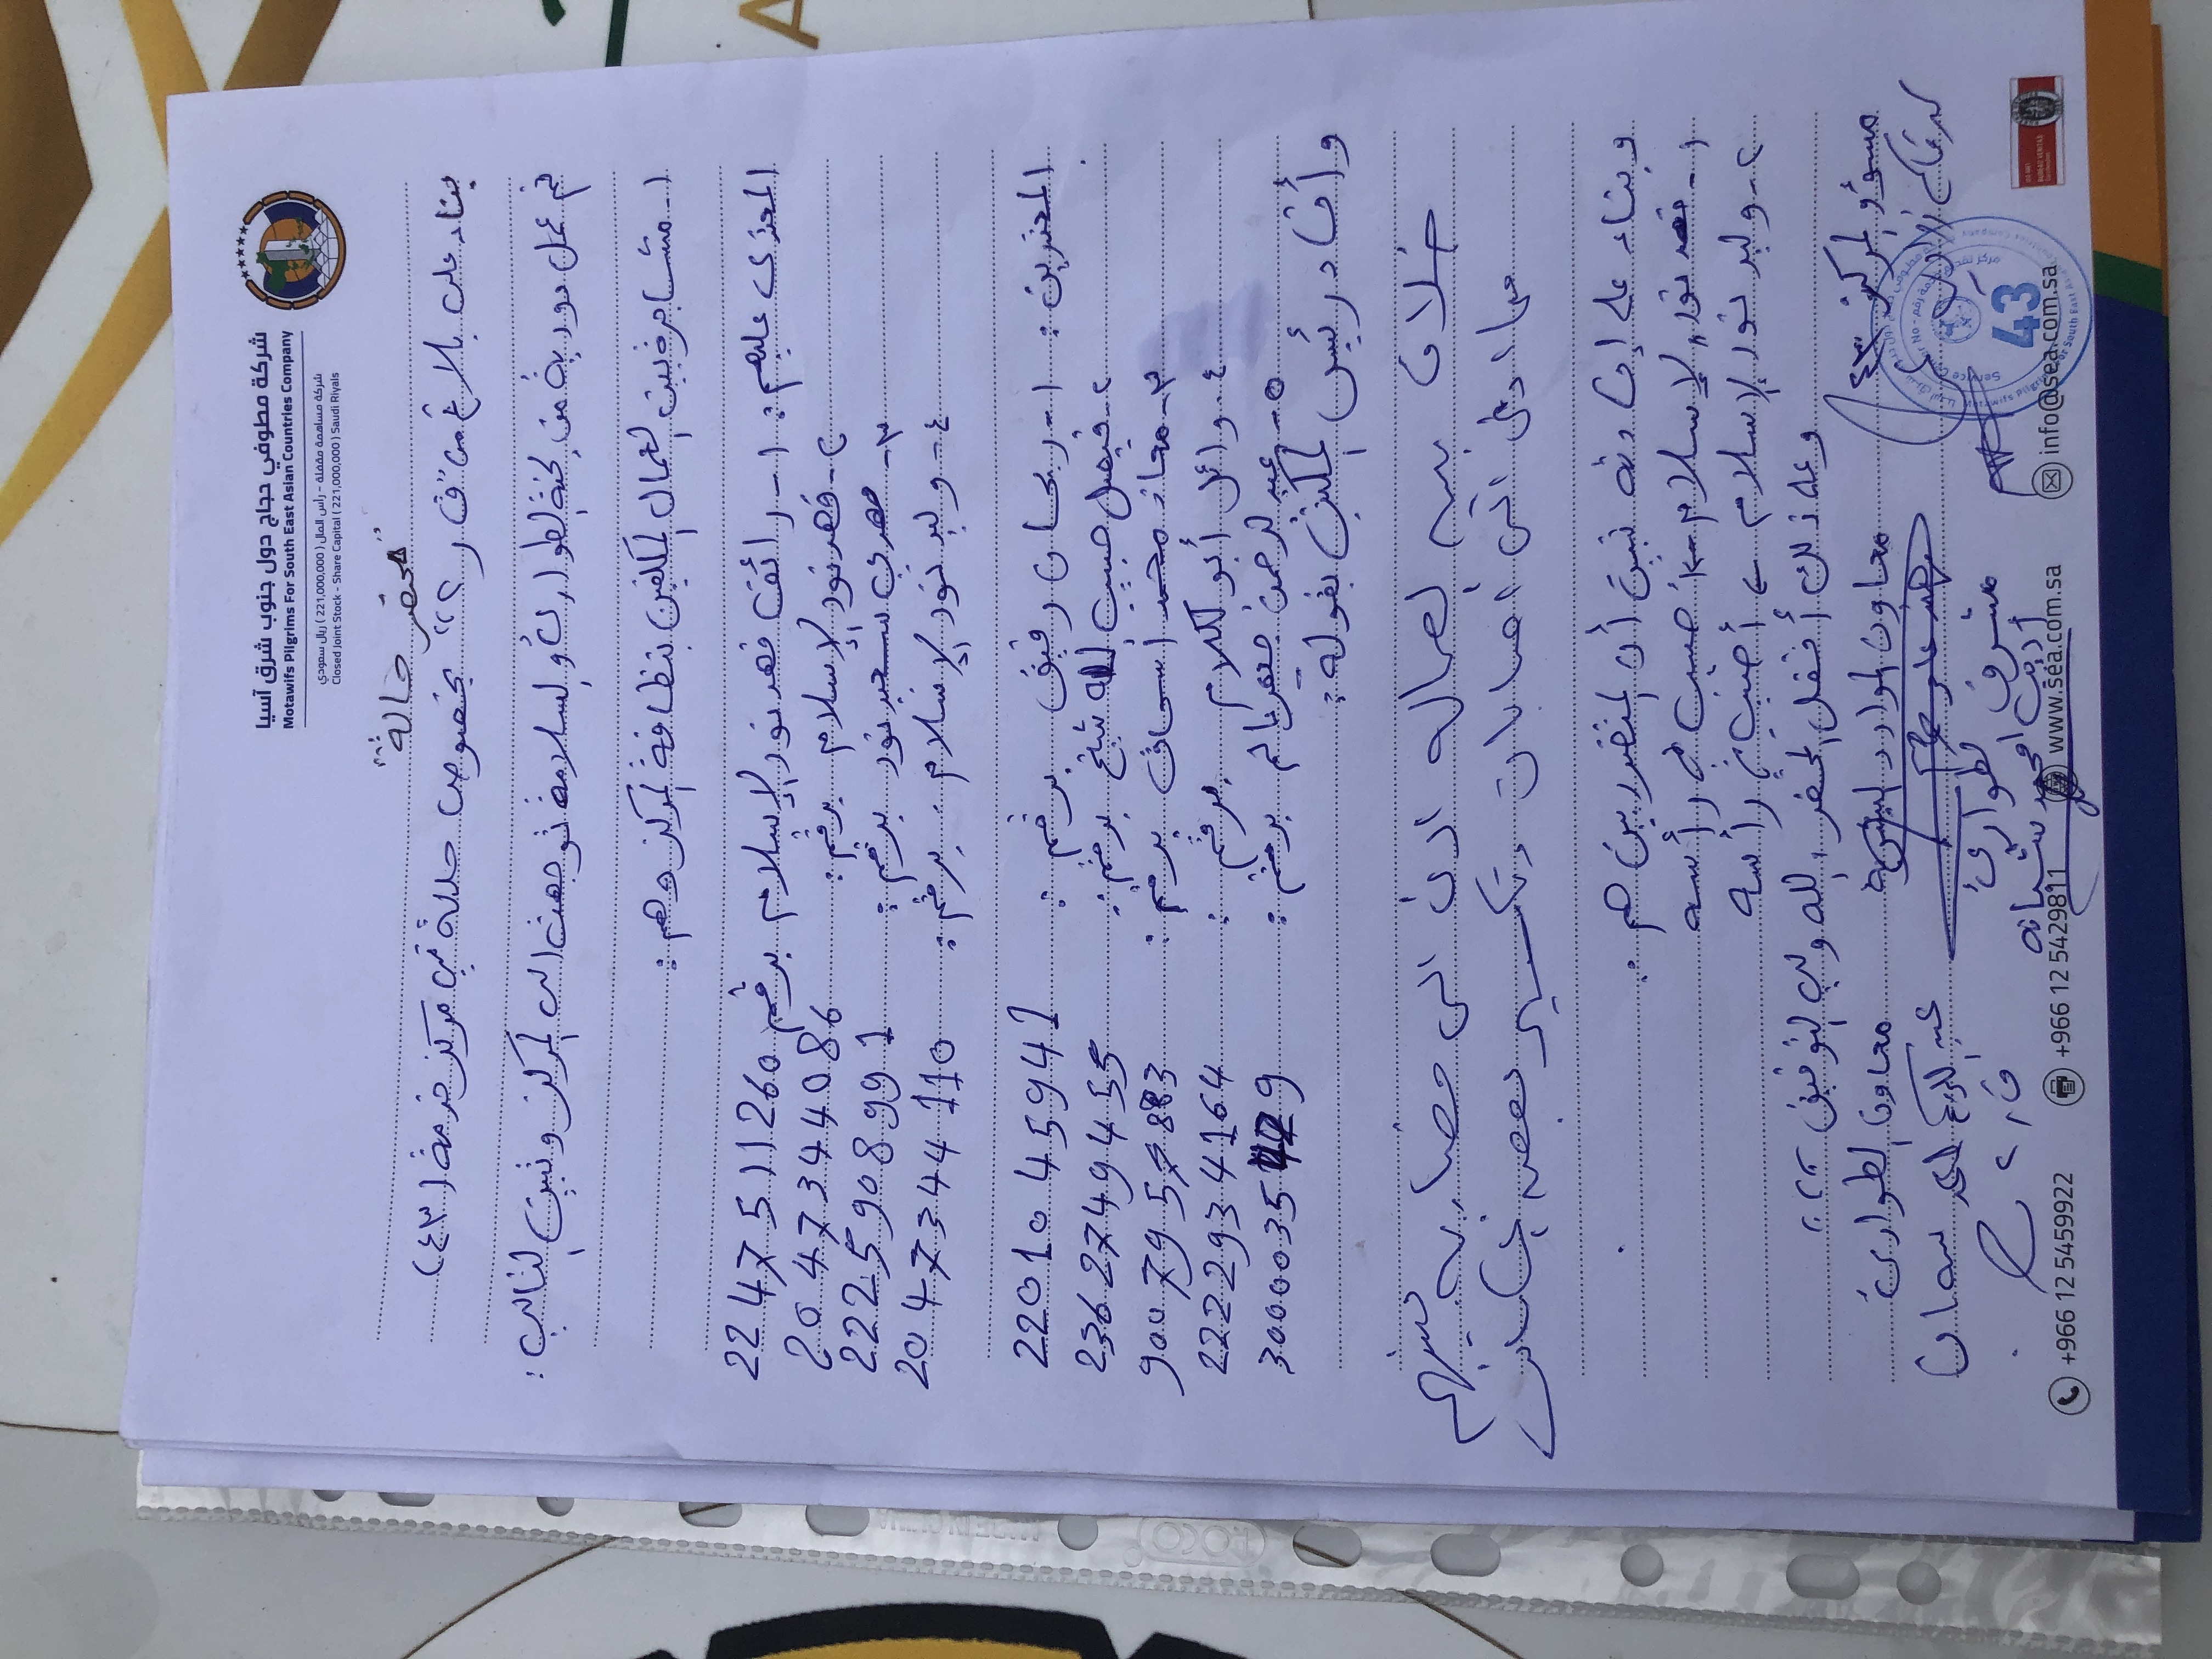 شركة مطوفي حجاج دول جنوب شرق آسيا
Motawifs Pilgrims For South East Asian Countries Company
شركة مساهمة مقفلة - رأس المال ( 221,000,000 ) ريال سعودي
Closed Joint Stock - Share Capital ( 221,000,000 ) Saudi Riyals
"محضر حالة"
بناء على بلاغ من "ق ر ٢" بخصوص حالة في مركز خدمة (٤٣)
تم عمل دورية من لجنة الطوارئ والسلامة توجهت الى المركز وتبين التالي :
١- مشاجرة بين العمال المكلفين بنظافة المركز وهم :
المعتدى عليهم : ١- رائف فهد نور الإسلام برقم 2247511260
٢- فهد نور الإسلام برقم : 2047344086
٣- مهدي سعيد نور برقم : 2225908991
٤- وليد نور الإسلام برقم : 2047344110
المعتدين : ١- ريحان رفيق برقم : 2201045941
٢- فيصل حبيب الله شيخ برقم : 2362749455
٣- معاذ محمد أسحاق برقم :
٤- وائل أبو الكلام برقم : 2222934164
٥- عبد الرحمن جعفر عالم برقم :
وأفاد رئيس المكتب بقوله :
خلاف بين العماله ادى الى مضاربه بينهم
مما ادى الى اصابات وتكسير بعض
وبناء على إفادته تبين أن المتضررين هم :
١- فهد نور الإسلام أصيب في رأسه
٢- وليد نور الإسلام أصيب في رأسه
وعلى ذلك أقفل المحضر ، الله ولي التوفيق ،،،
مسؤول المركز ٤٣ معاون الموارد البشرية معاون الطوارئ
عبد الكريم سمان
مشرف الطوارئ ق ر ٢
Service Center No
43
+966 12 5459922 +966 12 5429811 www.sea.com.sa info@sea.com.sa
BUREAU VERITAS
ROCO